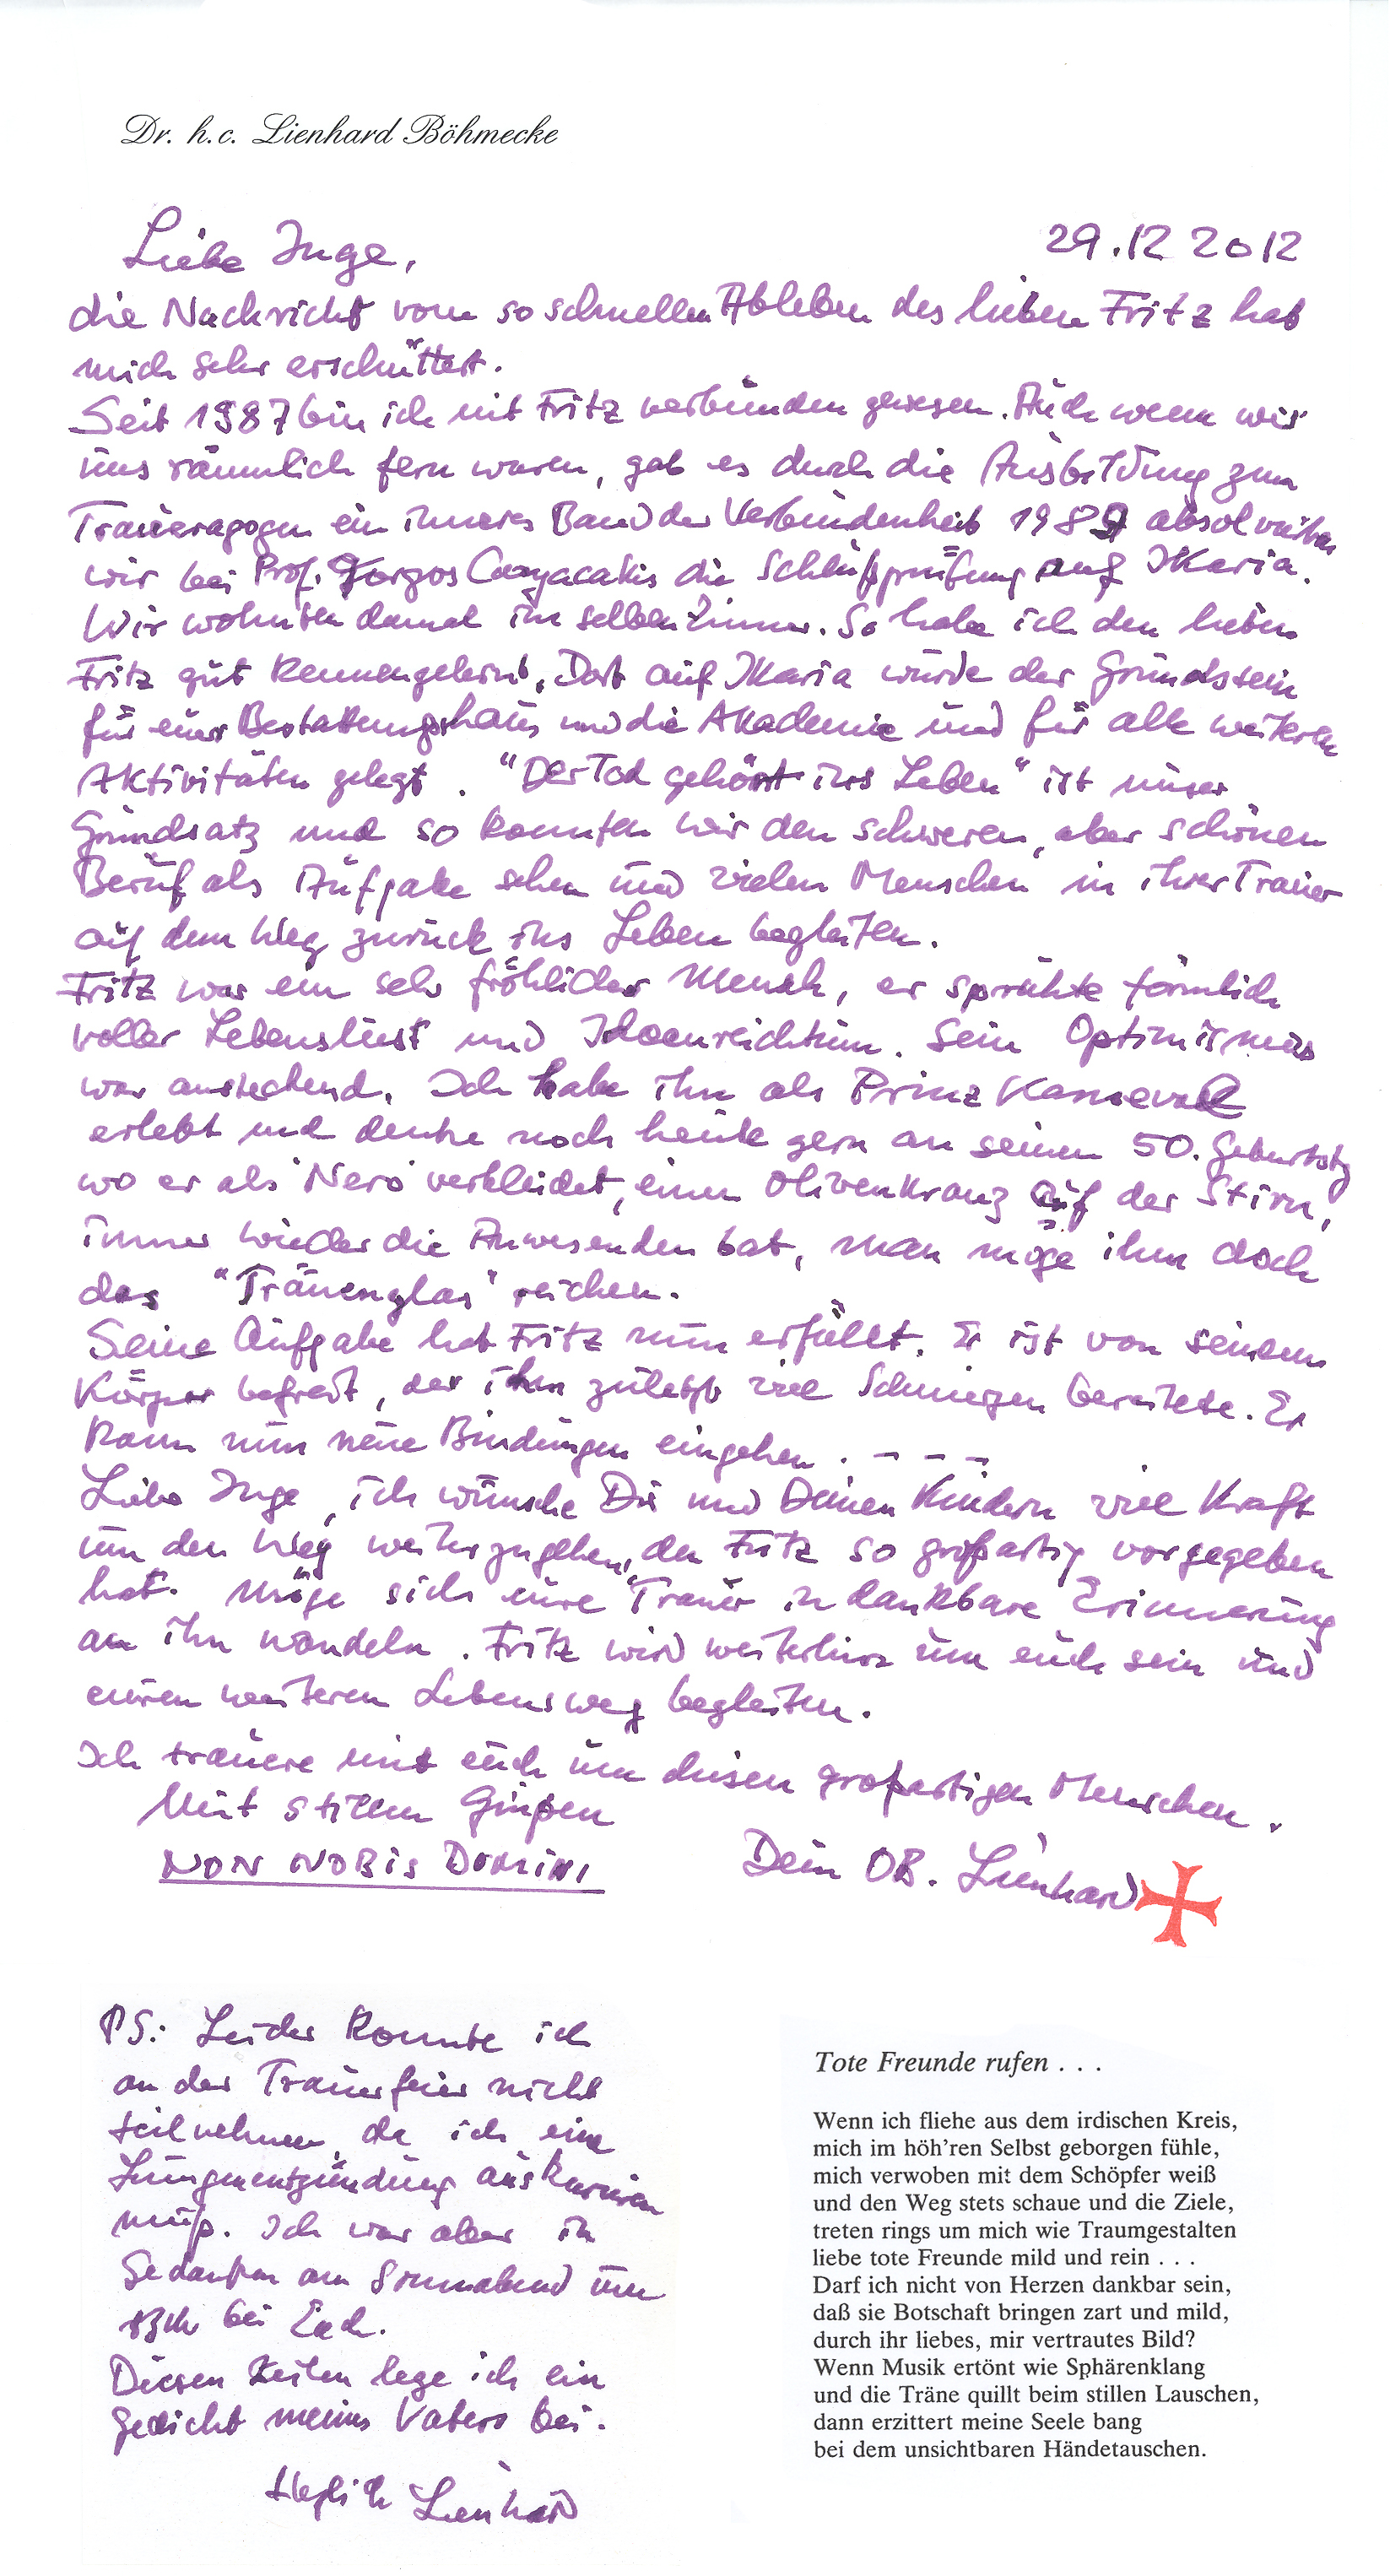 Dr. h.c. Lienhard Böhmecke
Liebe Inge,
29.12 2012
die Nachricht vom so schnellen Ableben des lieben Fritz hat
mich sehr erschüttert.
Seit 1987 bin ich mit Fritz verbunden gewesen. Auch wenn wir
uns räumlich fern waren, gab es durch die Ausbildung zum
Traueragogen ein inneres Band der Verbundenheit 1989 absolvierten
wir bei Prof. Jorgos Canacakis die Schlußprüfung auf IKaria.
Wir wohnten damal im selben Zimmer. So habe ich den lieben
Fritz gut kennengelernt. Dort auf IKaria wurde der Grundstein
für euer Bestattungshaus und die Akademie und für alle weiteren
Aktivitäten gelegt. "Der Tod gehört ins Leben" ist unser
Grundsatz und so konnten wir den schweren, aber schönen
Beruf als Aufgabe sehen und vielen Menschen in ihrer Trauer
auf dem Weg zurück ins Leben begleiten.
Fritz war ein sehr fröhlicher Mensch, er sprühte förmlich
voller Lebenslust und Ideenreichtum. Sein Optimismus
war ansteckend. Ich habe ihn als Prinz Karneval
erlebt und denke noch heute gern an seinen 50. Geburtstg
wo er als 'Nero' verkleidet, einen Olivenkranz auf der Stirn,
immer wieder die Anwesenden bat, man möge ihm doch
das "Tränenglas" reichen.
Seine Aufgabe hat Fritz nun erfüllt. Er ist von seinem
Körper befreit, der ihm zuletzt viel Schmerzen bereitete. Er
kann nun neue Bindungen eingehen. - - -
Liebe Inge, ich wünsche Dir und Deinen Kindern viel Kraft
um den Weg weiterzugehen, den Fritz so großartig vorgegeben
hat. Möge sich eure Trauer in dankbare Erinnerung
an ihn wandeln. Fritz wird weiterhin um euch sein und
euren weiteren Lebensweg begleiten.
Ich trauere mit euch um diesen großartigen Menschen.
Mit stillen Grüßen
NON NOBIS DOMINI
Dein OB. Lienhard
PS.: Leider konnte ich
an der Trauerfeier nicht
teilnehmen, da ich eine
Lungenentzündung auskurieren
muß. Ich war aber in
Gedanken am Sonnabend um
bei Euch.
Diesen Zeilen lege ich ein
Gedicht meines Vaters bei.
Herzlich Lienhard
Tote Freunde rufen . . .
Wenn ich fliehe aus dem irdischen Kreis,
mich im höh'ren Selbst geborgen fühle,
mich verwoben mit dem Schöpfer weiß
und den Weg stets schaue und die Ziele,
treten rings um mich wie Traumgestalten
liebe tote Freunde mild und rein . . .
Darf ich nicht von Herzen dankbar sein,
daß sie Botschaft bringen zart und mild,
durch ihr liebes, mir vertrautes Bild?
Wenn Musik ertönt wie Sphärenklang
und die Träne quillt beim stillen Lauschen,
dann erzittert meine Seele bang
bei dem unsichtbaren Händetauschen.